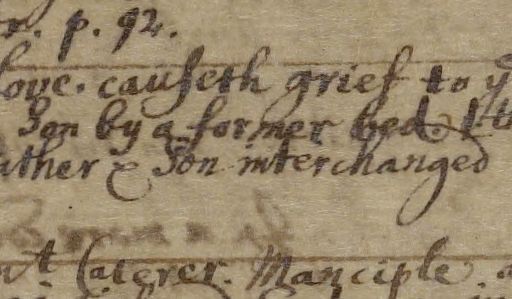 p. 92.
love. causeth grief to yᵉ
Son by a former bed.
ather & Son interchanged
Caterer. Manciple.